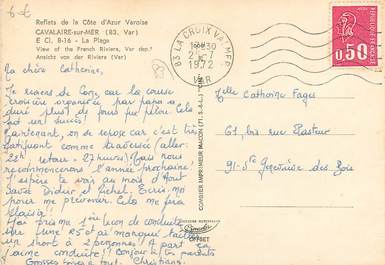 Reflets de la Côte d'Azur Varoise
CAVALAIRE-sur-MER (83. Var)
E Cl. B-16 - La Plage
View of the French Riviera, Var dep.t
Ansicht von der Riviera (Var)
83 LA CROIX VALMER
1972
VAR
RÉPUBLIQUE FRANÇAISE
0,50
POSTES
Ma chère Catherine,
Je reviens de Corse, car la course
croisière organisée par papa a
duré plus de jours que prévu. Cela
fut un succès!
Maintenant, on se repose car c'est très
fatiguant comme traversée (aller:
22h retour: 27 heures) Mais nous
recommencerons l'année prochaine!
J'espère te voir au mois d'Août
avec Didier et Michel. Ecris-moi
pour me prévenir. Cela me fera
plaisir!
leçon de conduite
sur une R5 et ai manqué
un short à 2 personnes! A part ça
j'aime conduire! Bonjour à tes parents
Grosses bises à tous. Christiane
COMBIER IMPRIMEUR MACON (71. S.-&-L.) "CIM"
OFFSET
Melle Catherine Fages
61, bis rue Pasteur
91- Ste Geneviève des Bois